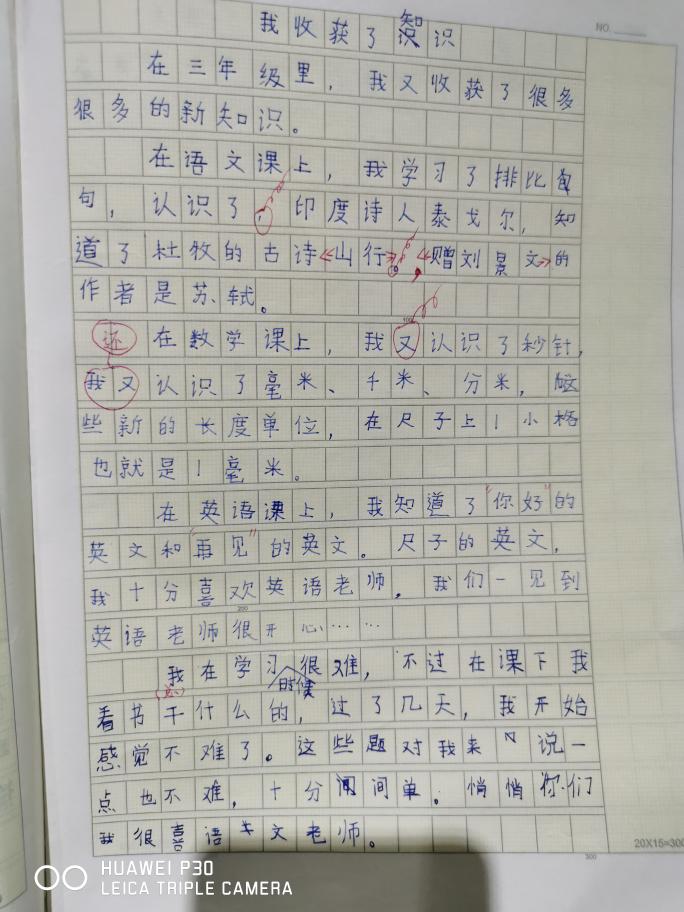 NO.
我收获了知识
在三年级里，我又收获了很多
很多的新知识。
在语文课上，我学习了排比句
句，认识了印度诗人泰戈尔，知
道了杜牧的古诗《山行》《赠刘景文》的
作者是苏轼。
还在数学课上，我又认识了秒针，
我又认识了毫米、千米、分米，
些新的长度单位，在尺子上1小格
也就是1毫米。
在英语课上，我知道了"你好"的
英文和"再见"的英文。尺子的英文，
我十分喜欢英语老师，我们一见到
英语老师很开心……
我在学习很难，不过在课下我
时候
看书干什么的，过了几天，我开始
感觉不难了。这些题对我来说一
点也不难，十分间单。悄悄你们
我很喜语文老师。
20X15=300
300
HUAWEI P30
LEICA TRIPLE CAMERA